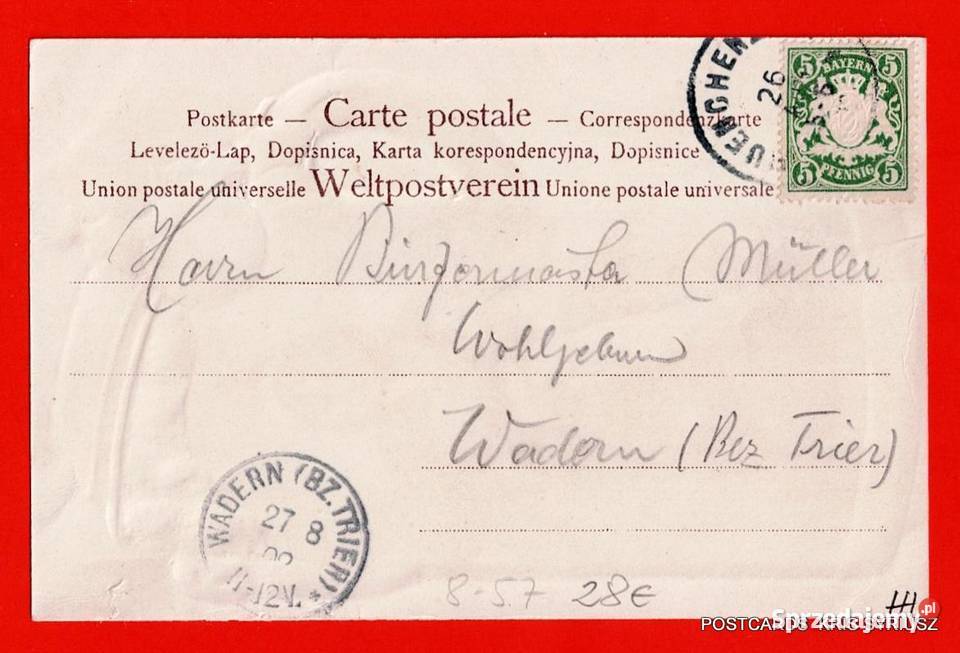 5 BAYERN 5
5 PFENNIG 5
26
Postkarte — Carte postale — Correspondenzkarte
Levelező-Lap, Dopisnica, Karta korespondencyjna, Dopisnice
Union postale universelle Weltpostverein Unione postale universale
Herrn Bürgermeister Müller
Wohlgeboren
Wadern (Bez Trier)
WADERN (BZ.TRIER) *
27 8
11-12V.
8-57 28€
Sprzedajemy.pl
POSTCARDS